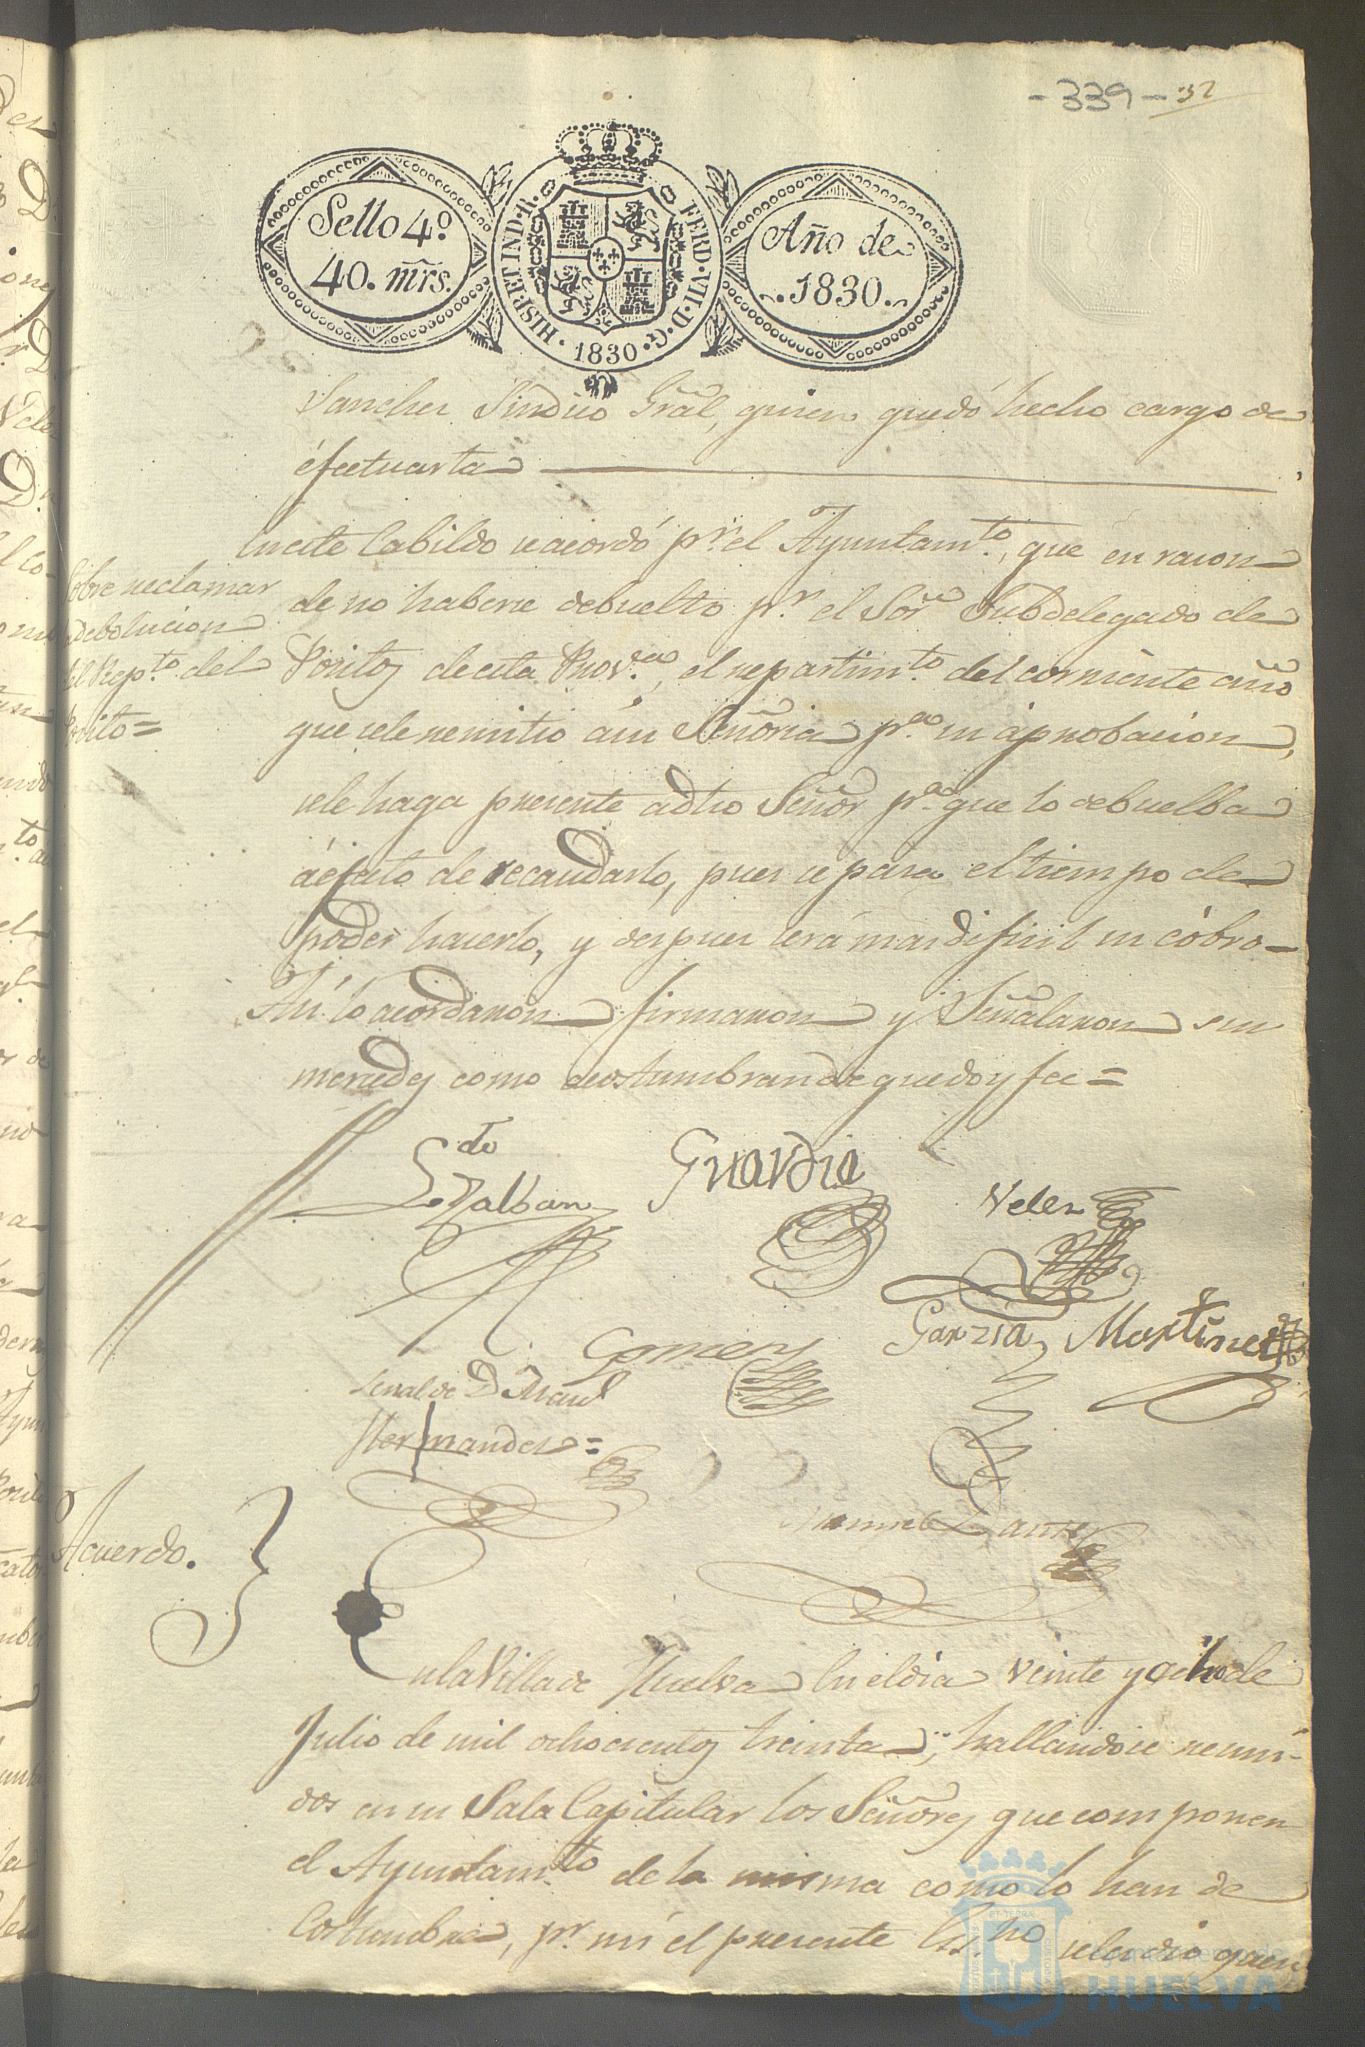 -339- 32
Sello 4º
40. mrs.
HISP. ET IND. R.
FERD. VII. D. G.
1830
Año de
1830.
Sanches Sindico Gral, quien quedó hecho cargo de
éfectuarla
En este Cabildo se acordó pr. el Ayuntamto. que en razon
Sobre reclamar
la debolucion
del Repto. del
Posito=
de no haberse debuelto pr. el Sor. Subdelegado de
Positos de esta Prova. el repartimto. del corriente año
que se le remitio á su Señoria pa. su áprobacion,
se le haga presente a dho Señor pa. que lo debuelba
á efecto de recaudarlo, pues se pasa el tiempo de
poder hacerlo, y despues será mas dificil su cóbro=
Asi lo acordaron firmaron y Señalaron sus
mercedes como acostumbran de que doy fee=
Ldo
Guardia
Velez
Garzia Martinez
Gomez
Señal de D Manl
Hernandez=
Acuerdo.
En la Villa de Huelva En el dia veinte y ocho de
Julio de mil ochocientos treinta, hallandose reuni-
dos en su Sala Capitular los Señores que componen
el Ayuntamto de la misma como lo han de
Costumbre, pr. mi el presente Esno se les dio quen
ET TERRAE
Ayuntamiento de
HUELVA